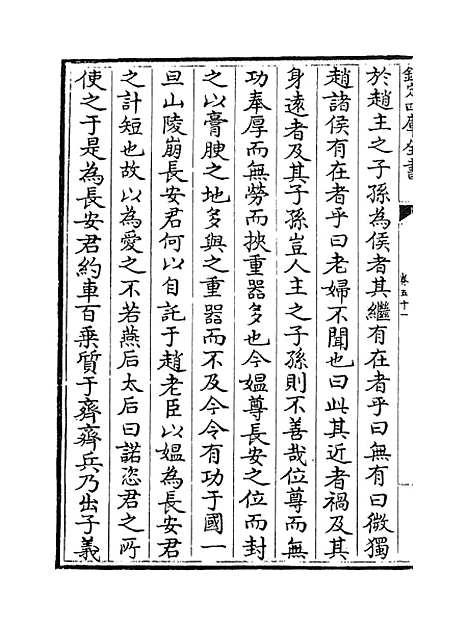 欽定四庫全書
卷五十一
於趙主之子孫為侯者其繼有在者乎曰無有曰微獨
趙諸侯有在者乎曰老婦不聞也曰此其近者禍及其
身遠者及其子孫豈人主之子孫則不善哉位尊而無
功奉厚而無勞而挾重器多也今媼尊長安之位而封
之以膏腴之地多與之重器而不及今令有功于國一
旦山陵崩長安君何以自託于趙老臣以媼為長安君
之計短也故以為愛之不若燕后太后曰諾恣君之所
使之于是為長安君約車百乗質于齊齊兵乃出子義